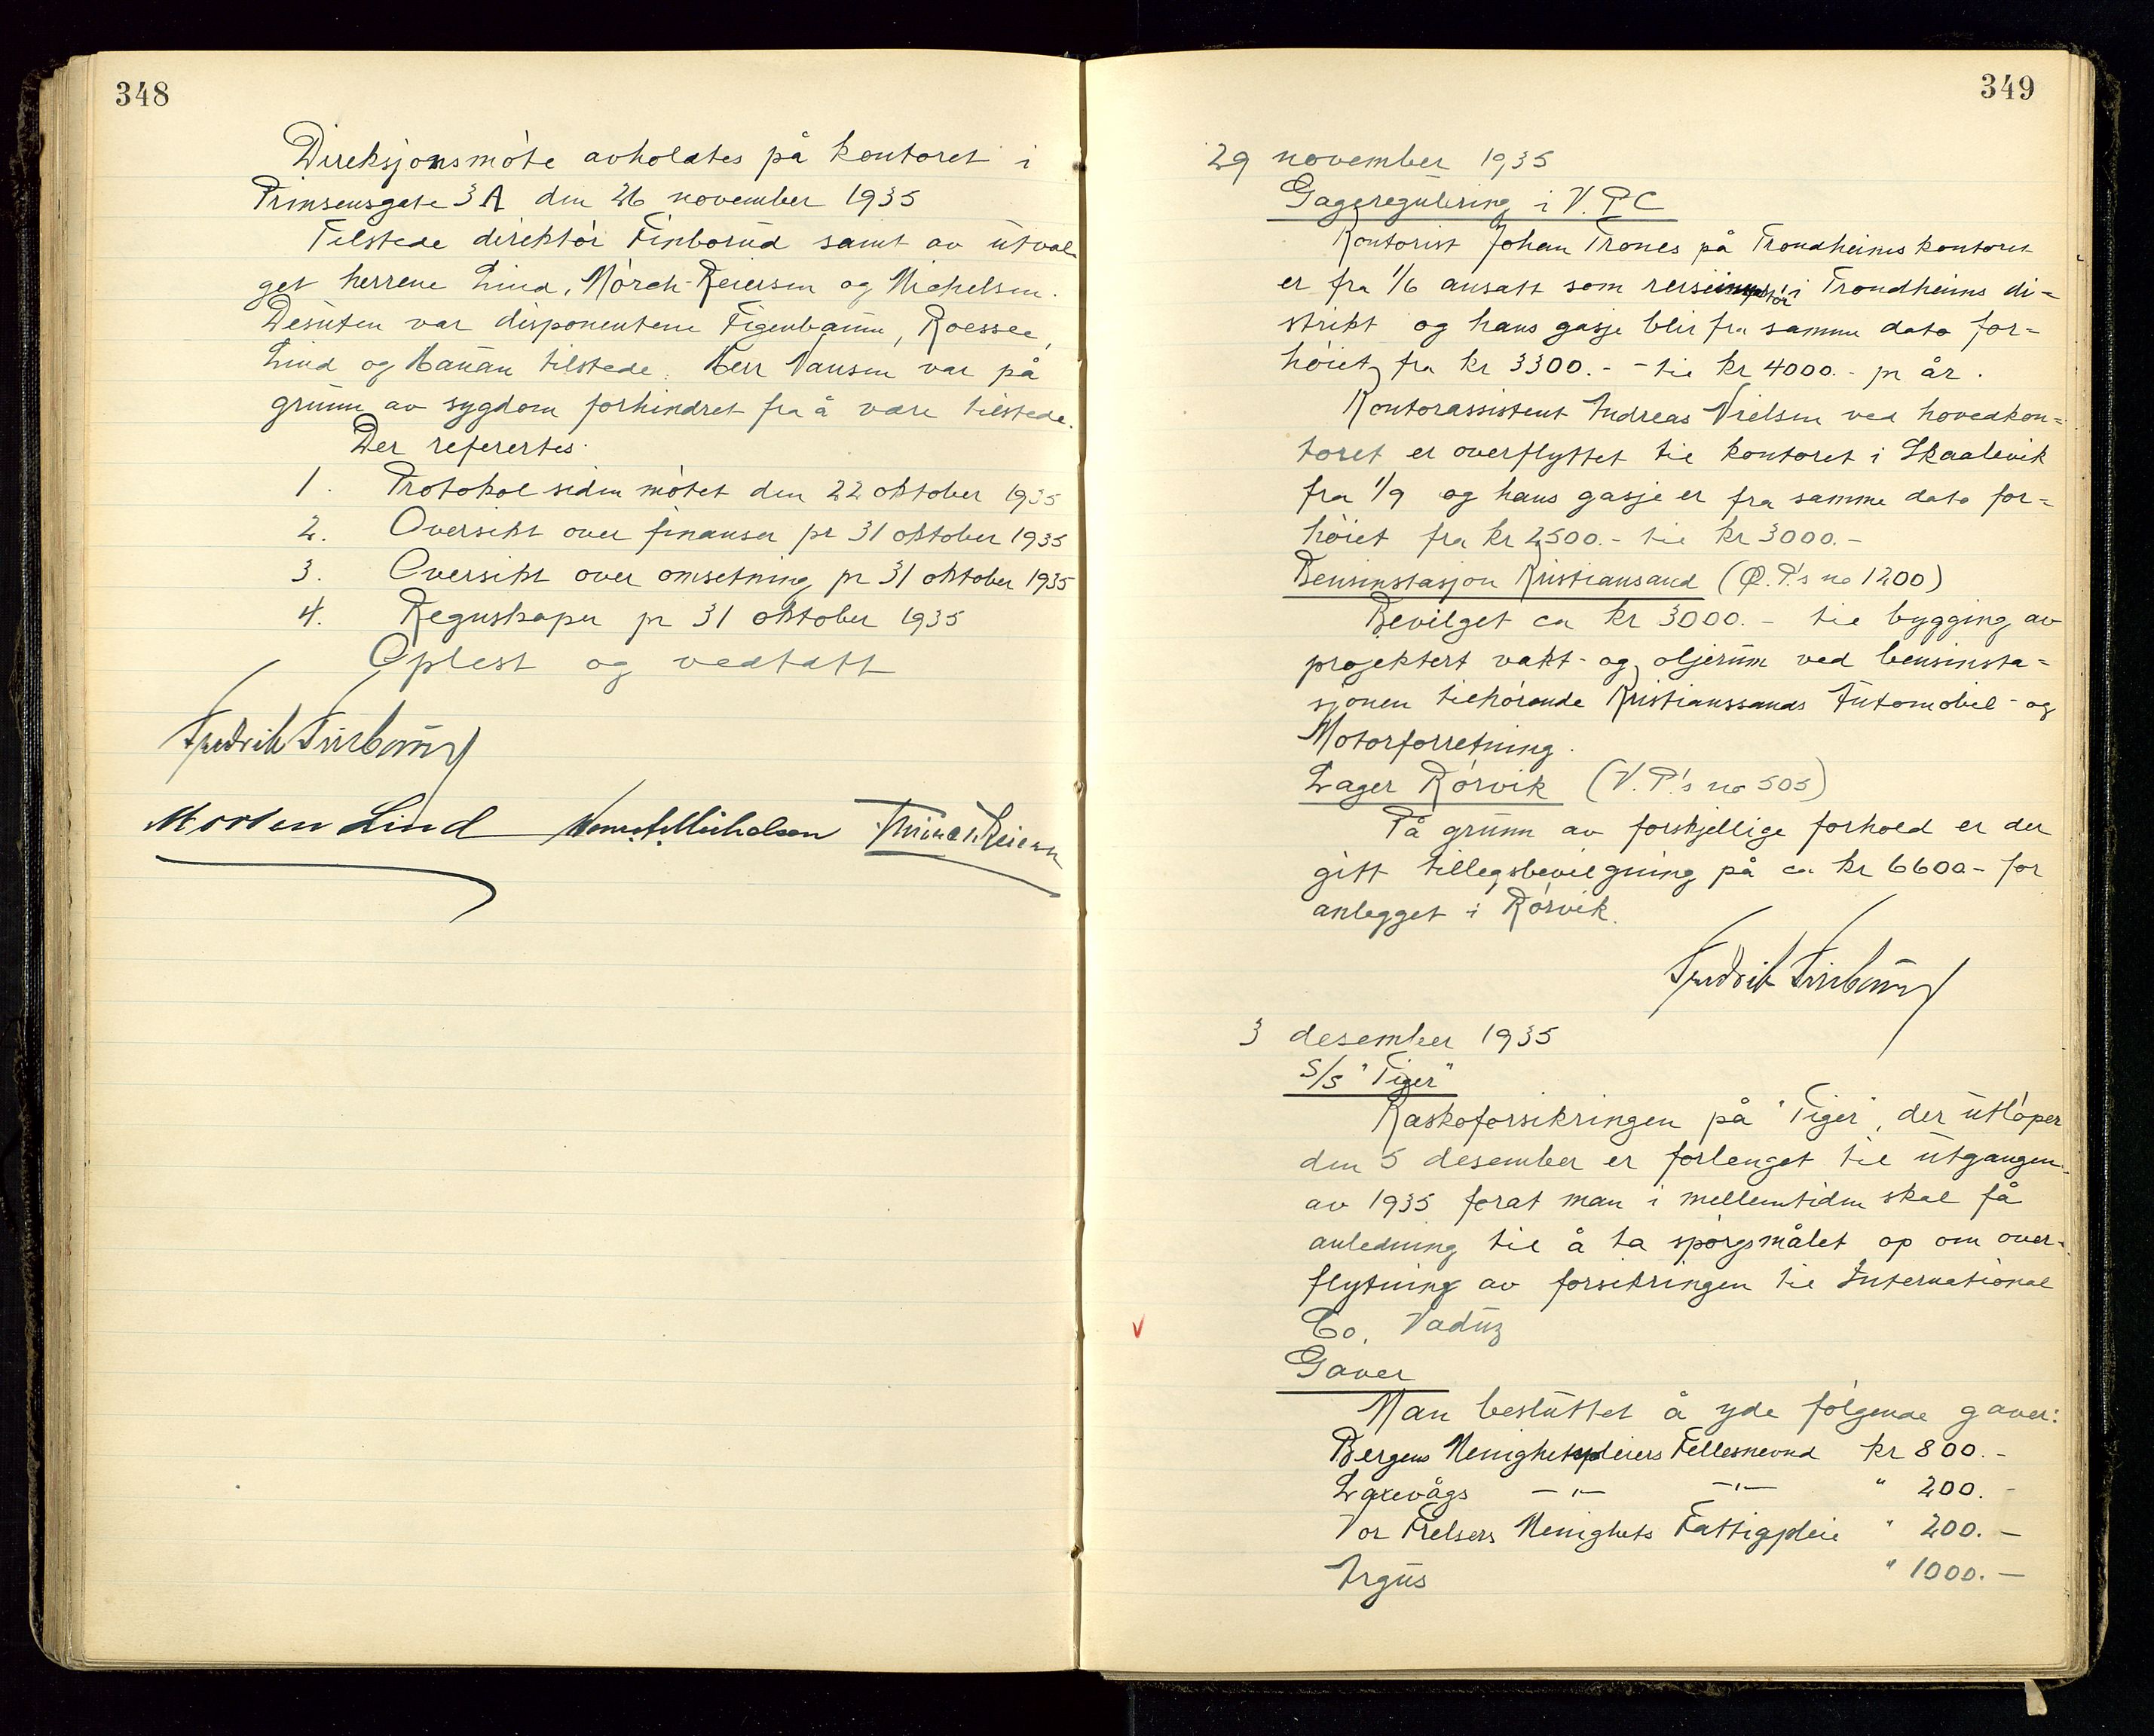 348
Direksjonsmöte avholdtes på kontoret i
Prinsensgate 3A den 26 november 1935
Tilstede direktör Finborud samt av utval-
get herrene Lind, Mörch-Reiersen og Michelsen.
Desuten var disponentene Eigenbaum, Roessee,
Lind og Hauan tilstede. Herr Nansen var på
grunn av sygdom forhindret fra å være tilstede.
Der referertes:
1. Protokol siden mötet den 22 oktober 1935
2. Oversikt over finanser pr 31 oktober 1935
3. Oversikt over omsetning pr 31 oktober 1935
4. Regnskaper pr 31 oktober 1935
Oplest og vedtatt
Fredrik
Morten Lind Michelsen Reiersen
349
29 november 1935
Gageregulering i V.P.C
Kontorist Johan Trones på Trondheims kontoret
er fra 1/6 ansatt som reiseinspektör i Trondheims di-
strikt og hans gasje blir fra samme dato for-
höiet fra kr 3300.- - til kr 4000.- pr år.
Kontorassistent Andreas Nielsen ved hovedkon-
toret er overflyttet til kontoret i Skaalevik
fra 1/9 og hans gasje er fra samme dato for-
höiet fra kr 2500.- til kr 3000.-
Bensinstasjon Kristiansand (Ö.P.'s no 1200)
Bevilget ca kr 3000.- til bygging av
projektert vakt- og oljerum ved bensinsta-
sjonen tilhörende Kristianssands Automobil- og
Motorforretning.
Lager Rörvik (V.P.'s no 505)
På grunn av forskjellige forhold er der
gitt tillegsbevilgning på ca kr 6600- for
anlegget i Rörvik.
Fredrik
3 desember 1935
S/S "Tiger"
Kaskoforsikringen på "Tiger", der utlöper
den 5 desember er forlenget til utgangen
av 1935 forat man i mellemtiden skal få
anledning til å ta spörgsmålet op om over-
flytning av forsikringen til International
Co, Vaduz
V
Gaver
Man besluttet å yde fölgende gaver:
Bergens Menighetspleiers Fellesnevnd kr 800.-
Laxevågs -"- -"- " 200.-
Vor Frelsers Menighets Fattigpleie " 200.-
Argus " 1000.-